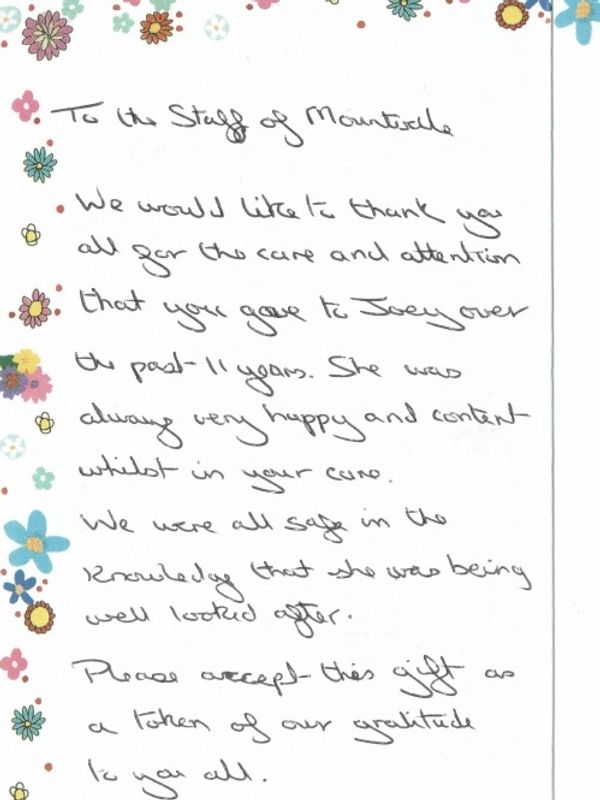 To the Staff of Mountvale
We would like to thank you
all for the care and attention
that you gave to Joey over
the past 11 years. She was
always very happy and content
whilst in your care.
We were all safe in the
knowledge that she was being
well looked after.
Please accept this gift as
a token of our gratitude
to you all.